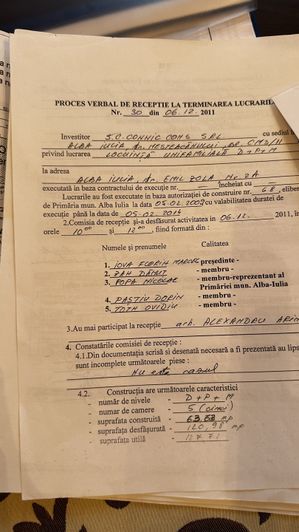 PROCES VERBAL DE RECEPTIE LA TERMINAREA LUCRARIL
Nr. 30 din 06.12.2011
Investitor S.C. CONNIC CONS SRL cu sediul
ALBA IULIA
privind lucrarea LOCUINTA UNIFAMILIALA D+P+M
la adresa
ALBA IULIA, str. EMIL ZOLA Nr. 2A
executată în baza contractului de execuţie nr. încheiat cu
Lucrarile au fost executate in baza autorizaţiei de construire nr. 68, elibe
de Primăria mun. Alba Iulia la data 05.02.2009 cu valabilitatea duratei de
execuţie până la data de 05.02
2.Comisia de recepţie şi-a desfăşurat activitatea in 06.12. 2011, în
orele 10 şi 12, fiind formată din :
Numele şi prenumele Calitatea
1. IOVA FLORIN MARCEL preşedinte -
2. membru -
3. POPA NICOLAE - membru-reprezentant al
Primăriei mun. Alba-Iulia
4. DORIN - membru -
5. TOTH OVIDIU - membru -
3.Au mai participat la recepţie arh. ALEXANDRU
4. Constatările comisiei de recepţie :
4.1.Din documentaţia scrisă si desenată necesară a fi prezentată au lips
sunt incomplete următoarele piese :
Nu este cazul
4.2. Construcţia are următoarele caracteristici
- număr de nivele - D+P+M
- numar de camere - 5 (cinci)
- suprafata construită - mp
- suprafaţa desfăşurată - 120,98 mp
- suprafaţa utilă -